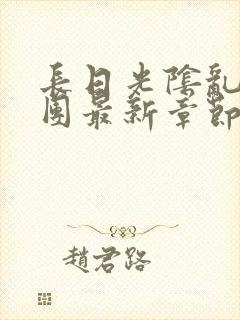 長日光陰亂
團最新章節
趙君路